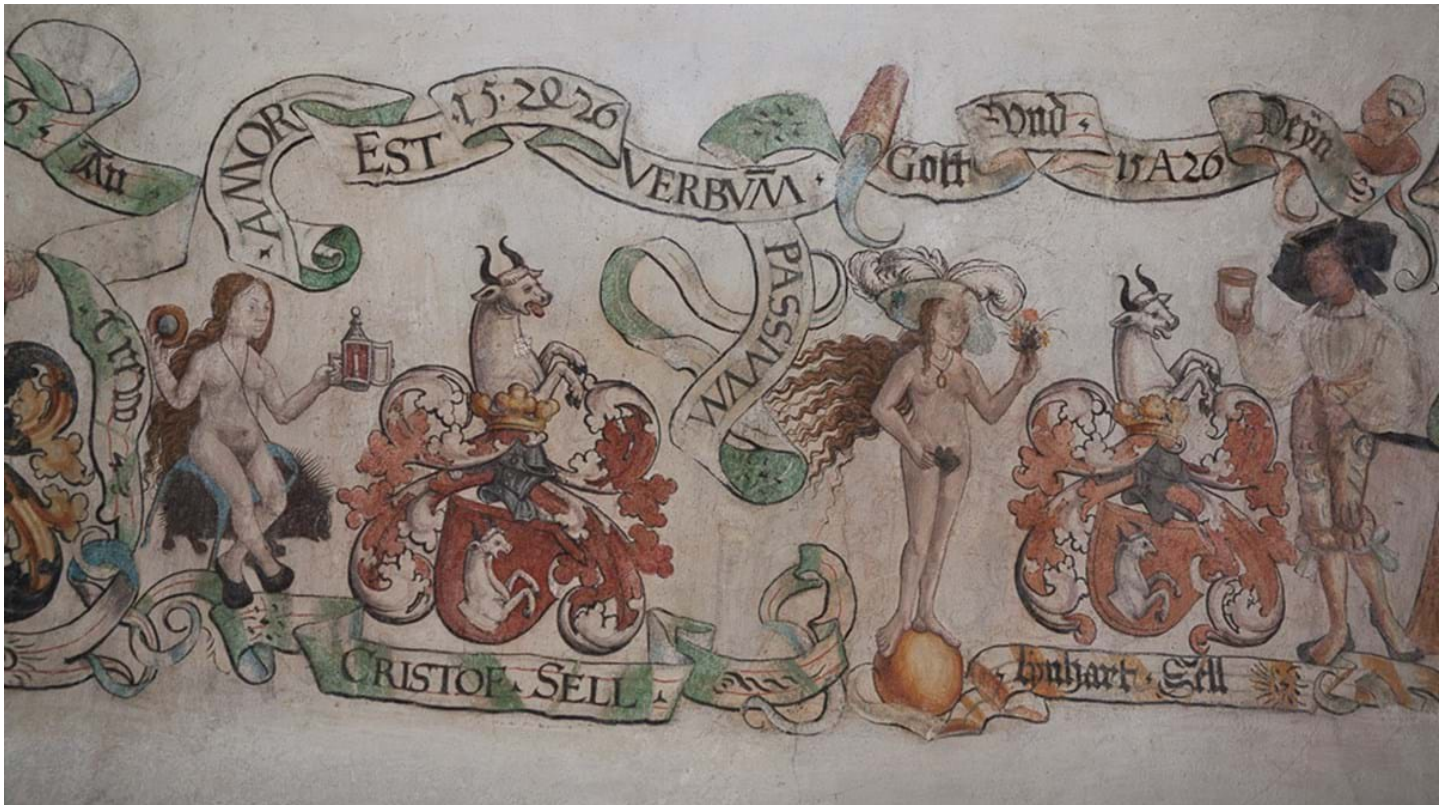 An
AMOR
EST
·15·2Q26
VERBVM̄ ·
PASSIVVM
Gott
Vnd ·
15A26
Deÿn
S
CRISTOF · SELL ·
· Linhart · Sell